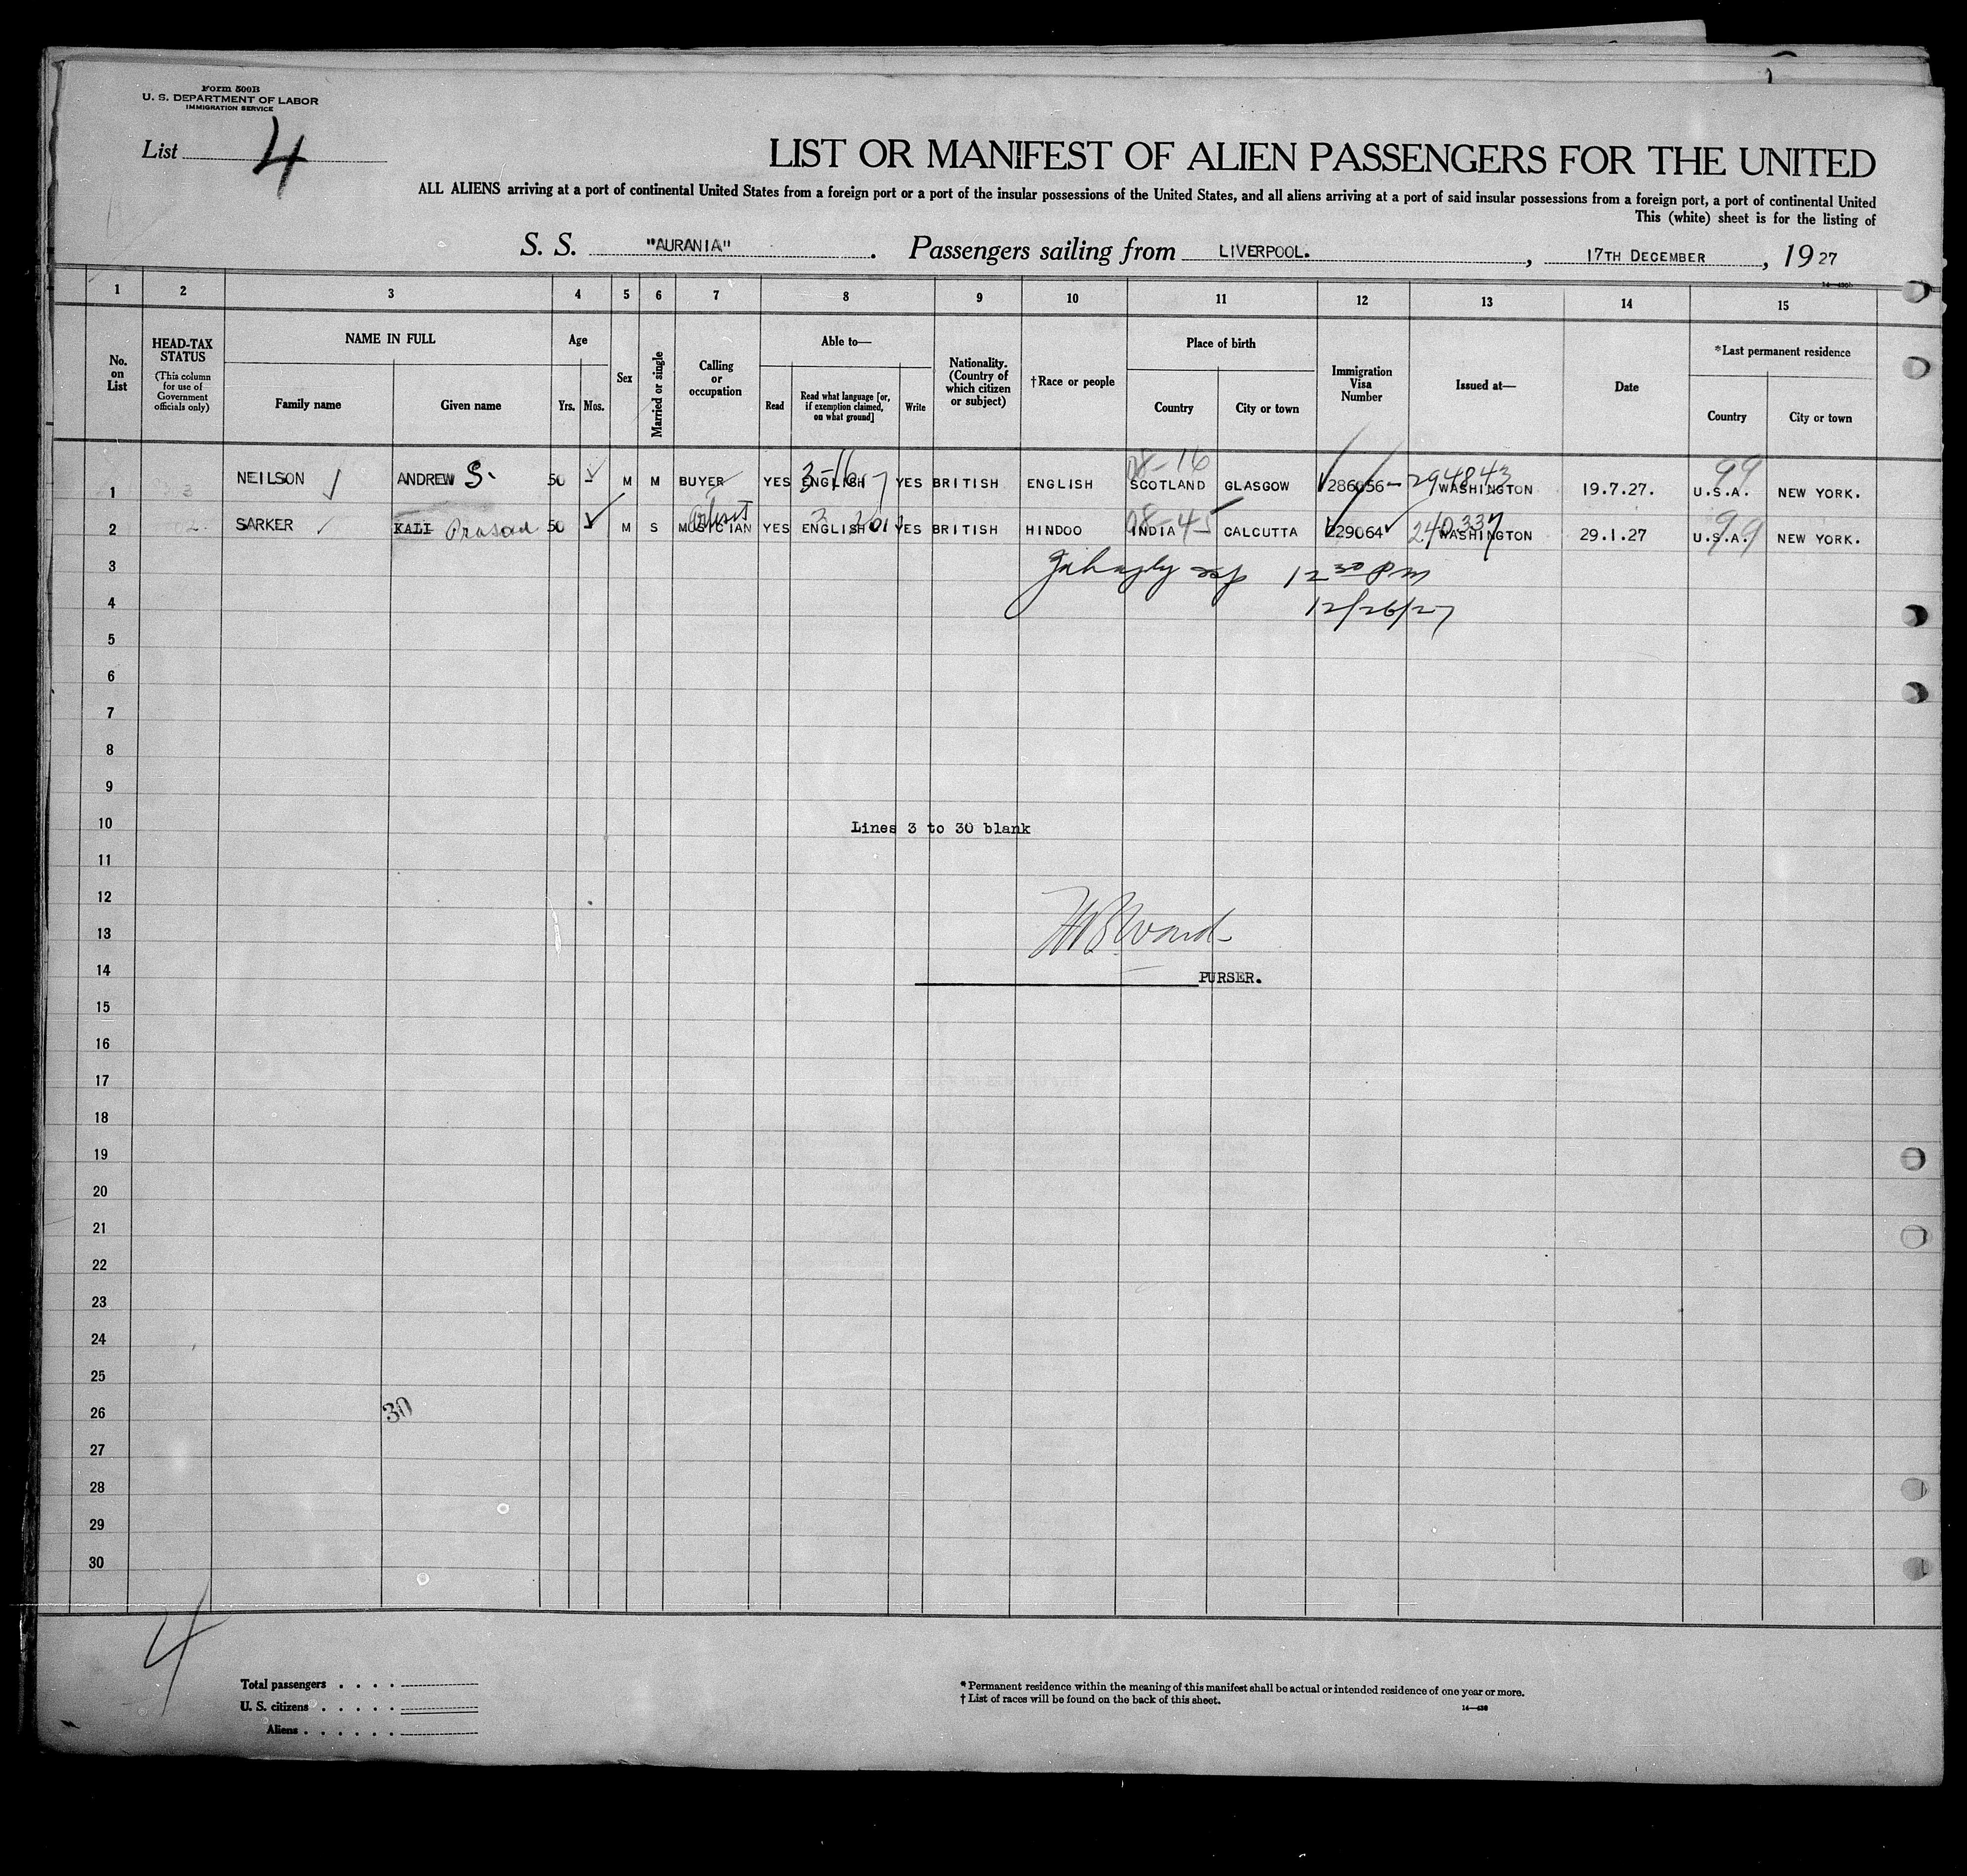 Form 500B
U. S. DEPARTMENT OF LABOR
IMMIGRATION SERVICE
List 4
LIST OR MANIFEST OF ALIEN PASSENGERS FOR THE UNITED
ALL ALIENS arriving at a port of continental United States from a foreign port or a port of the insular possessions of the United States, and all aliens arriving at a port of said insular possessions from a foreign port, a port of continental United
This (white) sheet is for the listing of
S. S. "AURANIA". Passengers sailing from LIVERPOOL., 17TH DECEMBER, 1927
1 2 3 4 5 6 7 8 9 10 11 12 13 14 15
No. on List
HEAD-TAX STATUS
(This column for use of Government officials only)
NAME IN FULL
Family name
Given name
Age
Yrs. Mos.
Sex
Married or single
Calling or occupation
Able to—
Read
Read what language [or, if exemption claimed, on what ground]
Write
Nationality. (Country of which citizen or subject)
†Race or people
Place of birth
Country
City or town
Immigration Visa Number
Issued at—
Date
*Last permanent residence
Country
City or town
1 3 NEILSON ANDREW S. 50 - M M BUYER YES ENGLISH YES BRITISH ENGLISH 08-16 SCOTLAND GLASGOW 286056 - 294843 WASHINGTON 19.7.27. 99 U.S.A. NEW YORK.
2 SARKER KALI Prasad 50 M S Artist MUSICIAN YES ENGLISH YES BRITISH HINDOO 08-45 INDIA CALCUTTA 229064 240337 WASHINGTON 29.1.27 99 U.S.A. NEW YORK.
3 12 30 Pm
4 12/26/27
5
6
7
8
9
10 Lines 3 to 30 blank
11
12
13
14 PURSER.
15
16
17
18
19
20
21
22
23
24
25
26 30
27
28
29
30
4
Total passengers
U. S. citizens
Aliens
* Permanent residence within the meaning of this manifest shall be actual or intended residence of one year or more.
† List of races will be found on the back of this sheet.
14—430